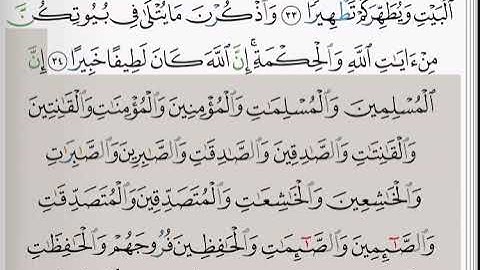 ٱلۡبَيۡتِ وَيُطَهِّرَكُمۡ تَطۡهِيرٗا ٣٣ وَٱذۡكُرۡنَ مَا يُتۡلَىٰ فِي بُيُوتِكُنَّ
مِنۡ ءَايَٰتِ ٱللَّهِ وَٱلۡحِكۡمَةِۚ إِنَّ ٱللَّهَ كَانَ لَطِيفًا خَبِيرًا ٣٤ إِنَّ
ٱلۡمُسۡلِمِينَ وَٱلۡمُسۡلِمَٰتِ وَٱلۡمُؤۡمِنِينَ وَٱلۡمُؤۡمِنَٰتِ وَٱلۡقَٰنِتِينَ
وَٱلۡقَٰنِتَٰتِ وَٱلصَّٰدِقِينَ وَٱلصَّٰدِقَٰتِ وَٱلصَّٰبِرِينَ وَٱلصَّٰبِرَٰتِ
وَٱلۡخَٰشِعِينَ وَٱلۡخَٰشِعَٰتِ وَٱلۡمُتَصَدِّقِينَ وَٱلۡمُتَصَدِّقَٰتِ
وَٱلصَّٰٓئِمِينَ وَٱلصَّٰٓئِمَٰتِ وَٱلۡحَٰفِظِينَ فُرُوجَهُمۡ وَٱلۡحَٰفِظَٰتِ